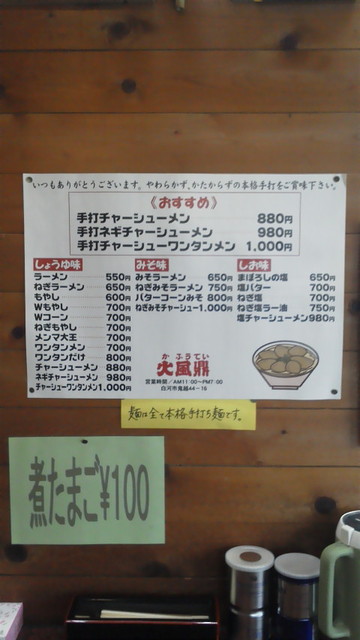 いつもありがとうございます。やわらかず、かたからずの本格手打をご賞味下さい。
《おすすめ》
手打チャーシューメン 880円
手打ネギチャーシューメン 980円
手打チャーシューワンタンメン 1,000円
しょうゆ味
ラーメン 550円
ねぎラーメン 650円
もやし 600円
Wもやし 700円
Wコーン 700円
ねぎもやし 700円
メンマ大王 700円
ワンタンメン 700円
ワンタンだけ 800円
チャーシューメン 880円
ネギチャーシューメン 980円
チャーシューワンタンメン 1,000円
みそ味
みそラーメン 650円
ねぎみそラーメン 750円
バターコーンみそ 800円
ねぎみそチャシュー 1,000円
しお味
まぼろしの塩 650円
塩バター 700円
ねぎ塩 700円
ねぎ塩ラー油 750円
塩チャーシューメン 980円
かふうてい
火風鼎
営業時間/AM11:00〜PM7:00
白河市鬼越44-16
麺は全て本格手打ち麺です。
煮たまご¥100